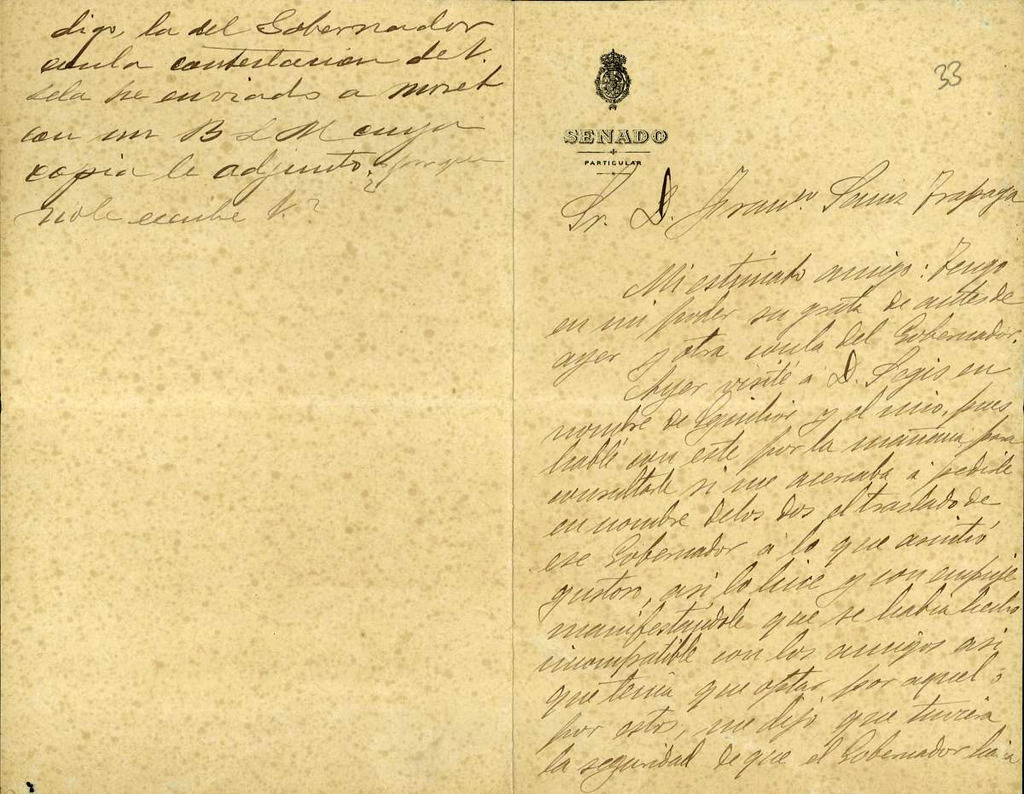 digo, la del Gobernador
con la contestacion de V.
se la he enviado a Moret
con un B L M cuya
copia le adjunto. ¿porque
no le escribe V.?
33
SENADO
PARTICULAR
Sr. D. Franco. Sainz Trapaga
Mi estimado amigo: Tengo
en mi poder su grata de antes de
ayer y otra con la del Gobernador.
Ayer visité a D. Segis en
nombre de Eguilior y el mio, pues
hablé con este por la mañana para
consultarle si me acercaba á pedirle
en nombre de los dos el traslado de
ese Gobernador á lo que asintió
gustoso, asi lo hice y con empuje
manifestándole que se habia hecho
incompatible con los amigos asi
que tenia que optar por aquel ó
por estos, me dijo que tuviera
la seguridad de que el Gobernador